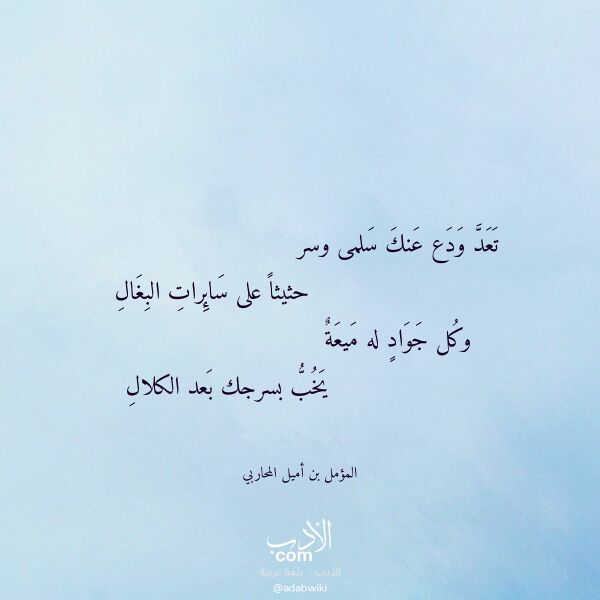 تَعَدَّ وَدَع عَنكَ سَلمى وسر
حثيثاً على سَايِراتِ البِغَالِ
وكُل جَوَادٍ له مَيعَةٌ
يَخُبُّ بسرجك بَعد الكلالِ
المؤمل بن أميل المحاربي
الأدب
com
الأدب .. بلغة عربية
@adabwiki